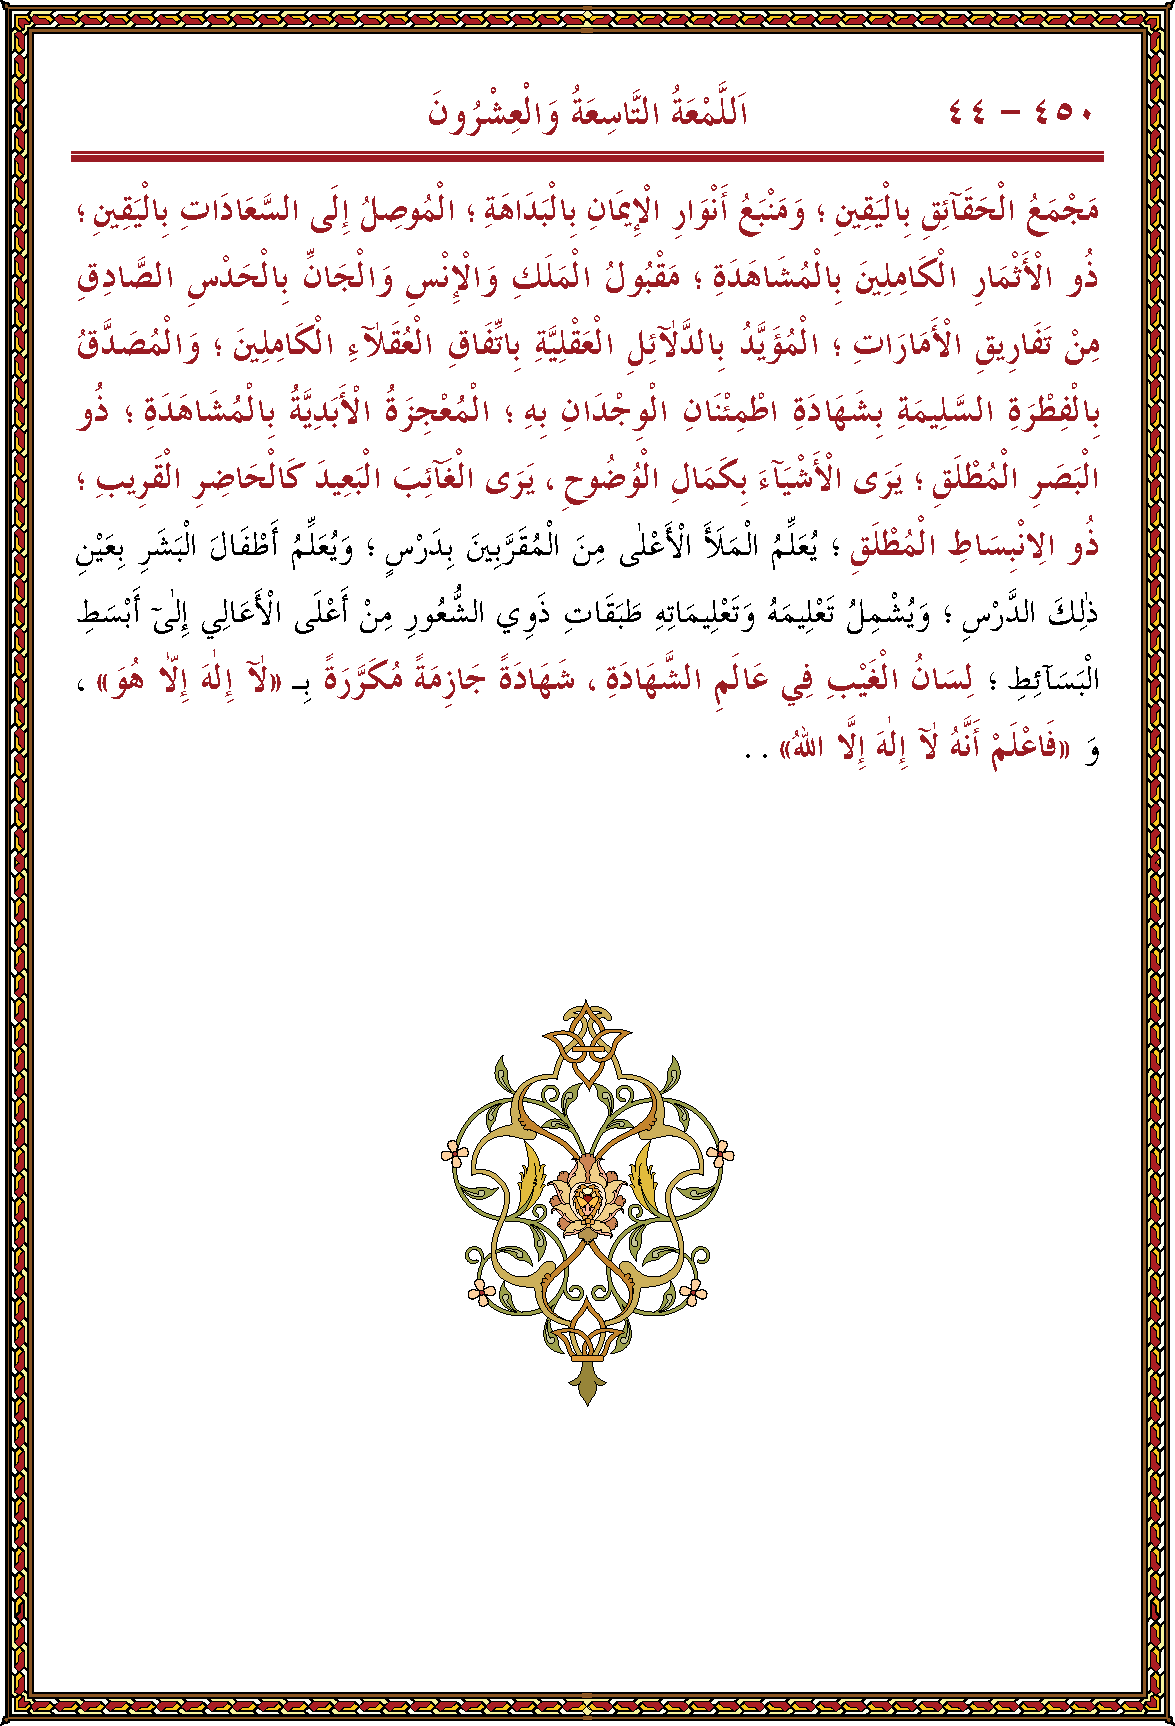 ٤٥٠ – ٤٤ اَللَّمْعَةُ التَّاسِعَةُ وَالْعِشْرُونَ
مَجْمَعُ الْحَقَآئِقِ بِالْيَقِينِ ؛ وَمَنْبَعُ أَنْوَارِ الْإِيمَانِ بِالْبَدَاهَةِ ؛ الْمُوصِلُ إِلَى السَّعَادَاتِ بِالْيَقِينِ ؛
ذُو الْأَثْمَارِ الْكَامِلِينَ بِالْمُشَاهَدَةِ ؛ مَقْبُولُ الْمَلَكِ وَالْإِنْسِ وَالْجَانِّ بِالْحَدْسِ الصَّادِقِ
مِنْ تَفَارِيقِ الْأَمَارَاتِ ؛ الْمُؤَيَّدُ بِالدَّلَآئِلِ الْعَقْلِيَّةِ بِاتِّفَاقِ الْعُقَلَآءِ الْكَامِلِينَ ؛ وَالْمُصَدَّقُ
بِالْفِطْرَةِ السَّلِيمَةِ بِشَهَادَةِ اطْمِئْنَانِ الْوِجْدَانِ بِهِ ؛ الْمُعْجِزَةُ الْأَبَدِيَّةُ بِالْمُشَاهَدَةِ ؛ ذُو
الْبَصَرِ الْمُطْلَقِ ؛ يَرَى الْأَشْيَآءَ بِكَمَالِ الْوُضُوحِ ، يَرَى الْغَآئِبَ الْبَعِيدَ كَالْحَاضِرِ الْقَرِيبِ ؛
ذُو الِانْبِسَاطِ الْمُطْلَقِ ؛ يُعَلِّمُ الْمَلَأَ الْأَعْلٰى مِنَ الْمُقَرَّبِينَ بِدَرْسٍ ؛ وَيُعَلِّمُ أَطْفَالَ الْبَشَرِ بِعَيْنِ
ذٰلِكَ الدَّرْسِ ؛ وَيُشْمِلُ تَعْلِيمَهُ وَتَعْلِيمَاتِهِ طَبَقَاتِ ذَوِي الشُّعُورِ مِنْ أَعْلَى الْأَعَالِي إِلٰىٓ أَبْسَطِ
الْبَسَآئِطِ ؛ لِسَانُ الْغَيْبِ فِي عَالَمِ الشَّهَادَةِ ، شَهَادَةً جَازِمَةً مُكَرَّرَةً بِـ «لَآ إِلٰهَ إِلَّا هُوَ» ،
وَ «فَاعْلَمْ أَنَّهُ لَآ إِلٰهَ إِلَّا اللهُ» . .